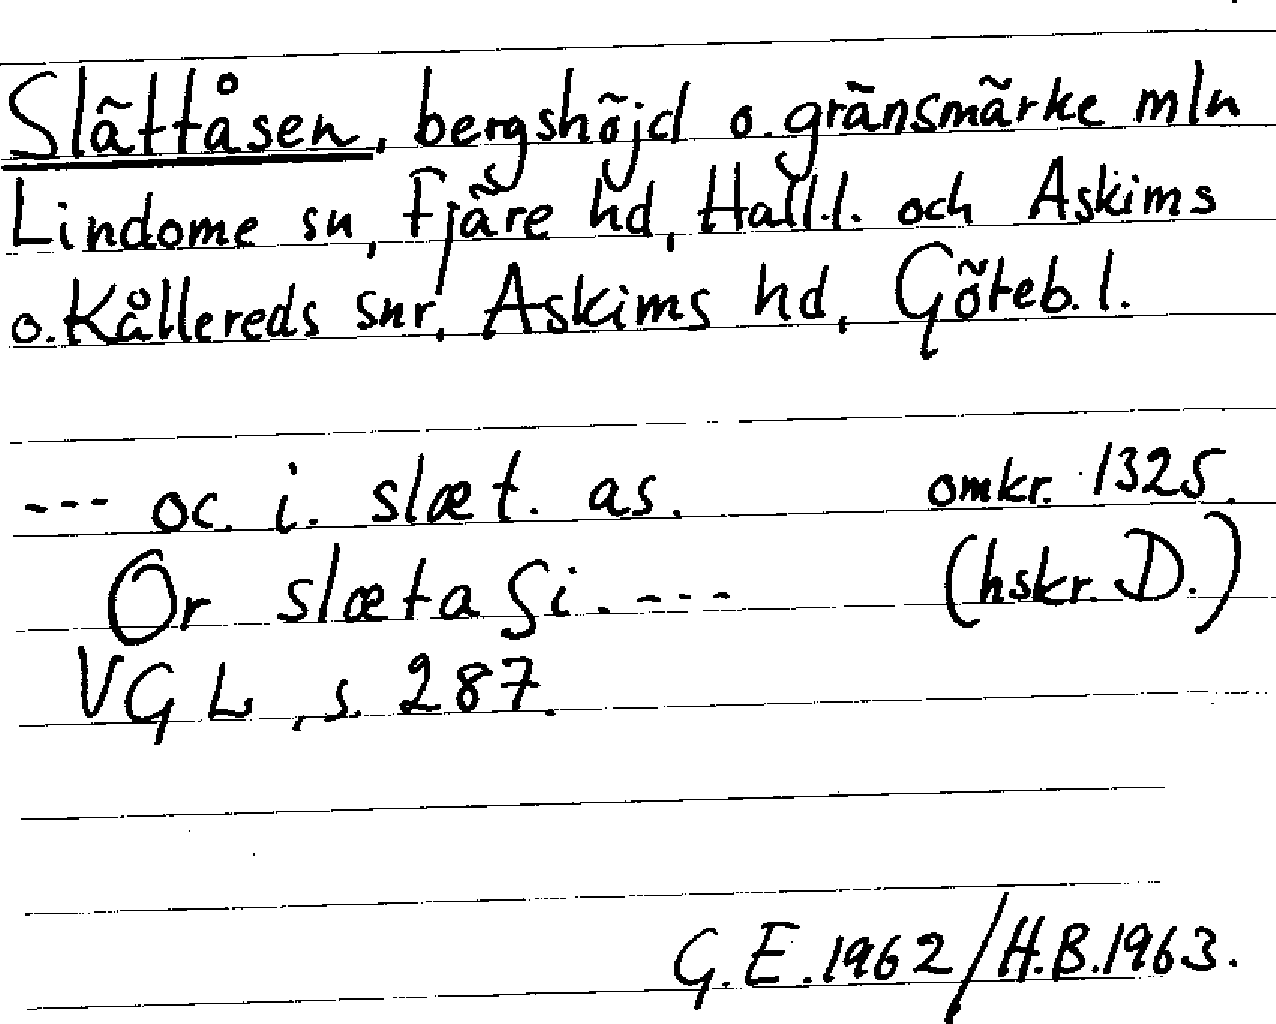 Slättåsen, bergshöjd o. gränsmärke mln
Lindome sn, Fjäre hd, Hall.l. och Askims
o. Kållereds snr, Askims hd, Göteb. l.
--- oc. i. slæt. as. omkr. 1325.
Or slæta si. --- (hskr. D.)
VGL, s. 287.
G.E. 1962/H.B. 1963.